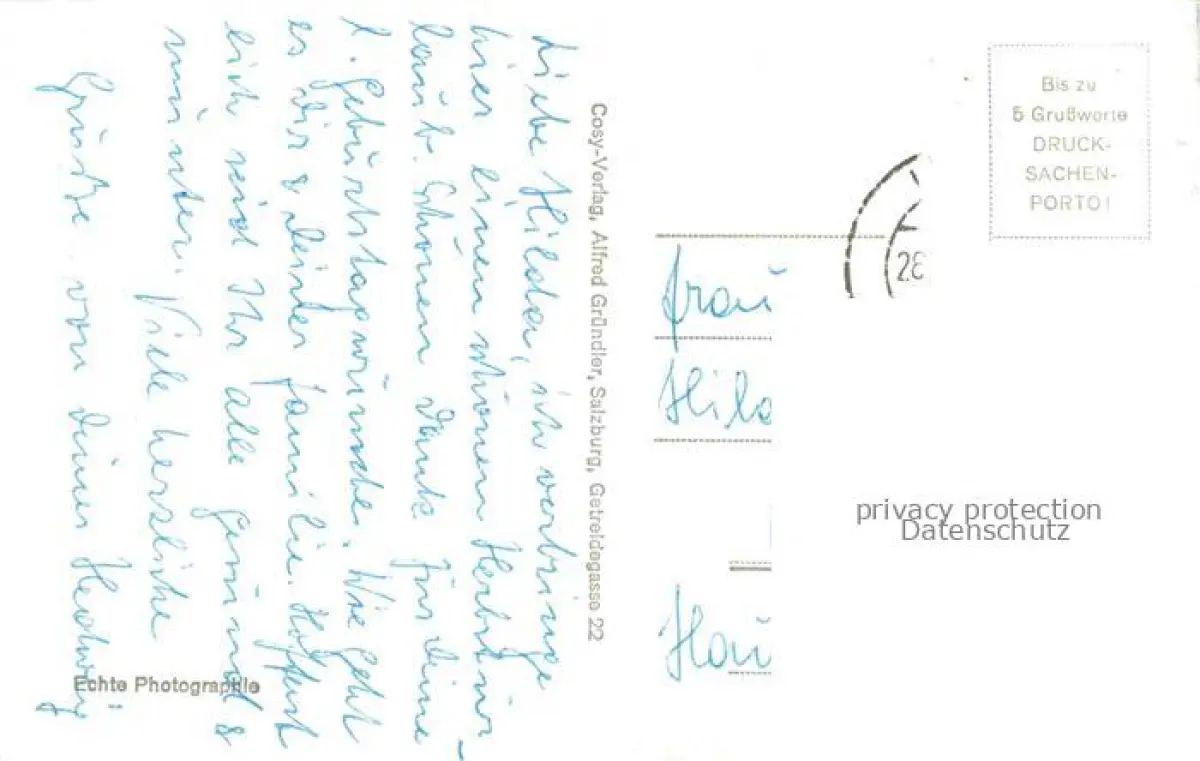 Liebe Hilden, ich verbringe
hier einen schönen Herbstur-
laub. Schönen Dank für Deine
l. Geburtstagwünsche. Wie geht
es Dir & deiner Familie. Hoffent
lich seid Ihr alle gesund &
munter. Viele herzliche
Grüße von Deiner Hedwig
Echte Photographie
Cosy-Verlag, Alfred Gründler, Salzburg, Getreidegasse 22
Bis zu
5 Grußworte
DRUCK-
SACHEN-
PORTO!
28
Frau
Hild
Hau
privacy protection
Datenschutz